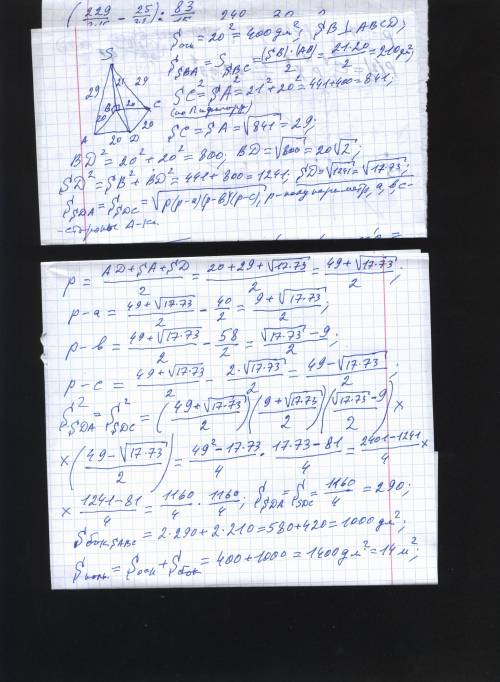 (229/ - 25/) : 83/
S
S осн = 20² = 400 дм²; SB ⊥ ABCD
S SBA = S SBC = (SB)·(AB)/2 = 21·20/2 = 210 дм²
SC² = SA² = 21² + 20² = 441+400 = 841;
(по Пифагору)
SC = SA = √841 = 29;
29 21 29
B 20 C
20
A 20 D 20
BD² = 20² + 20² = 800; BD = √800 = 20√2;
SD² = SB² + BD² = 441 + 800 = 1241. SD = √1241 = √17·73;
S SDA = S SDC = √p(p-a)(p-в)(p-c), p - полупериметр, а, в, с -
- стороны Δ-ка.
p = (AD+SA+SD)/2 = (20+29+√17·73)/2 = (49+√17·73)/2;
p-a = (49+√17·73)/2 - 40/2 = (9+√17·73)/2;
p-в = (49+√17·73)/2 - 58/2 = (√17·73 - 9)/2;
p-c = (49+√17·73)/2 - 2·√17·73/2 = (49-√17·73)/2;
S²SDA = S²SDC = ((49+√17·73)/2)((9+√17·73)/2)((√17·73 - 9)/2) ×
× ((49-√17·73)/2) = (49²-17·73)/4 · (17·73-81)/4 = (2401-1241)/4 ×
× (1241-81)/4 = 1160/4 · 1160/4; S SDA = S SDC = 1160/4 = 290;
S бок SABC = 2·290 + 2·210 = 580+420 = 1000 дм²;
S полн = S осн + S бок = 400+1000 = 1400 дм² = 14 м²;